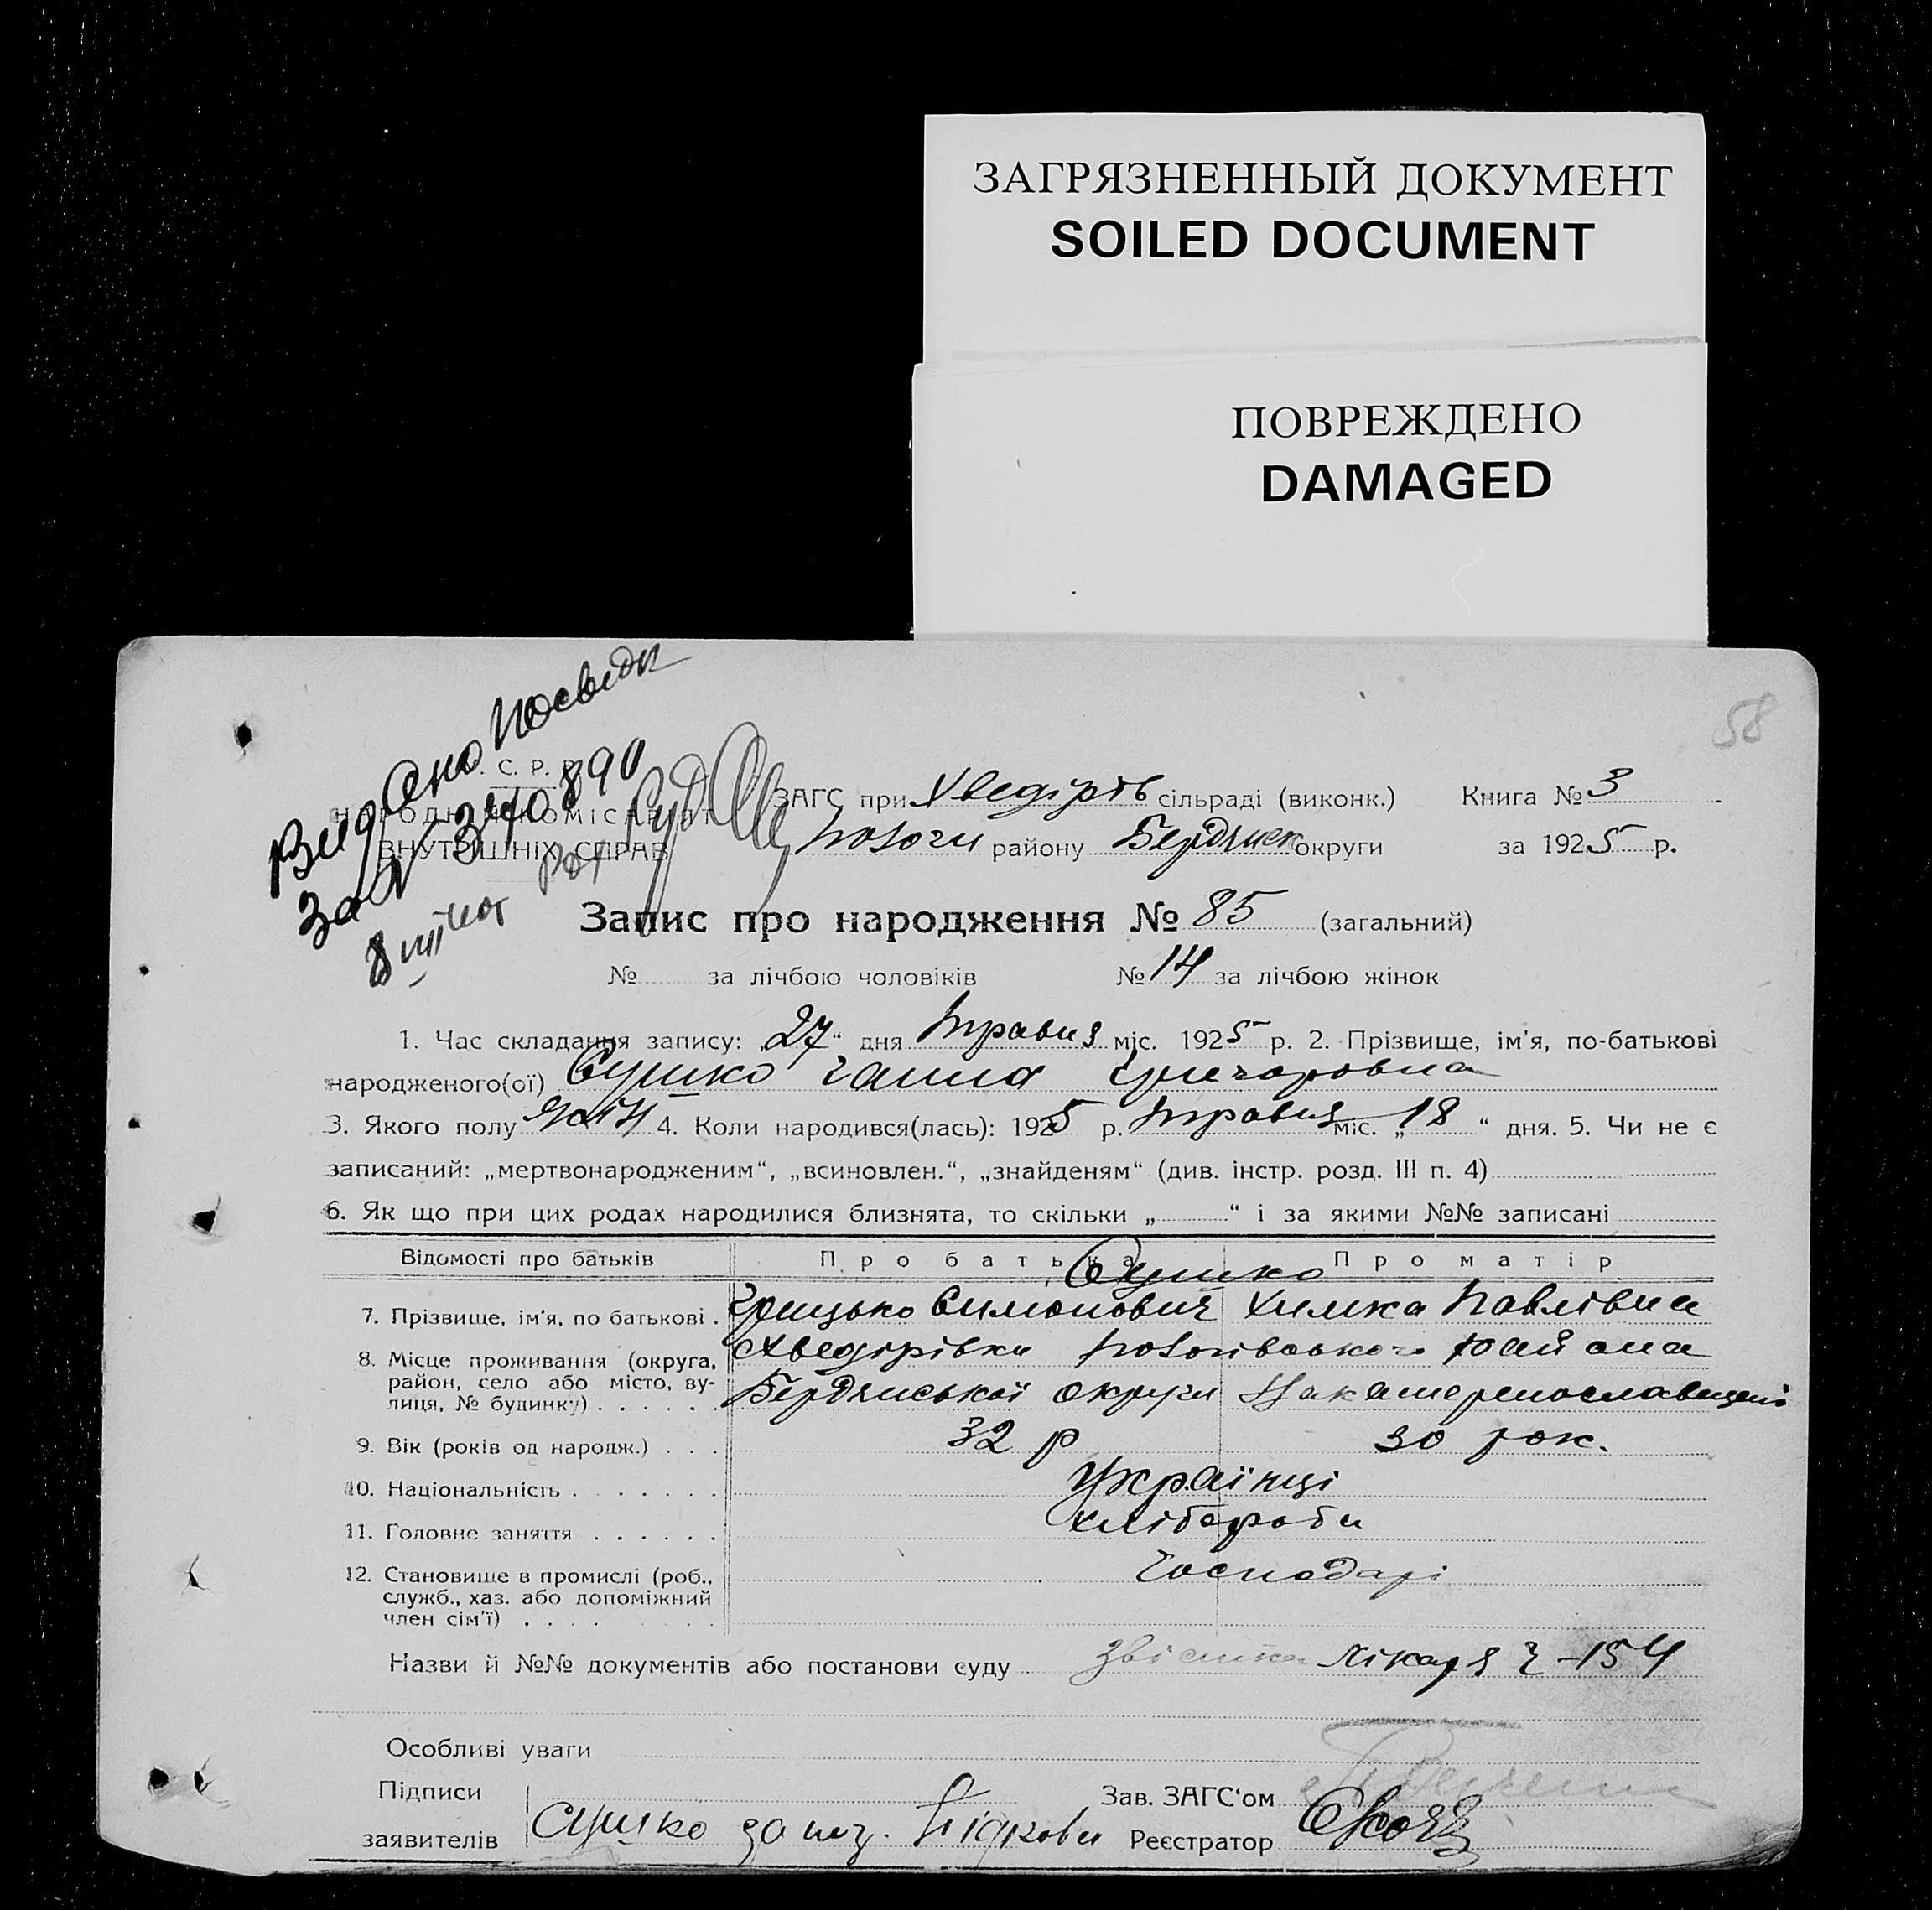 ЗАГРЯЗНЕННЫЙ ДОКУМЕНТ
SOILED DOCUMENT
ПОВРЕЖДЕНО
DAMAGED
58
Видано посвідк
За № 340890
С. Р. Р.
НАРОДНІЙ КОМІСАРІАТ
ВНУТРІШНІХ СПРАВ
ЗАГС при Хведірів сільраді (виконк.) Книга № 3
Пологи району Бердянск округи за 1925 р.
Запис про народження № 85 (загальний)
№ за лічбою чоловіків № 14 за лічбою жінок
1. Час складання запису: „27“ дня Травня міс. 1925 р. 2. Прізвище, ім’я, по-батькові
народженого(ої) Сушко Ганна Григоровна
3. Якого полу жін 4. Коли народився(лась): 1925 р. Травня міс. „18“ дня. 5. Чи не є
записаний: „мертвонародженим“, „всиновлен.“, „знайденям“ (див. інстр. розд. III п. 4)
6. Як що при цих родах народилися близнята, то скільки „ “ і за якими №№ записані
Відомості про батьків Про батька Про матір
Сушко
7. Прізвище, ім’я, по батькові Грицько Симонович Химка Павлівна
8. Місце проживання (округа, район, село або місто, вулиця, № будинку) Хведірівки Пологівського району
Бердянської округи на Катеринославщені
9. Вік (років од народж.) 32 р 30 рок.
10. Національність Українці
11. Головне заняття хлібороби
12. Становище в промислі (роб., служб., хаз. або допоміжний член сім’ї) Господарі
Назви й №№ документів або постанови суду Звістка лікаря Ч-154
Особливі уваги
Підписи заявителів Сушко
Зав. ЗАГС‘ом
Реєстратор